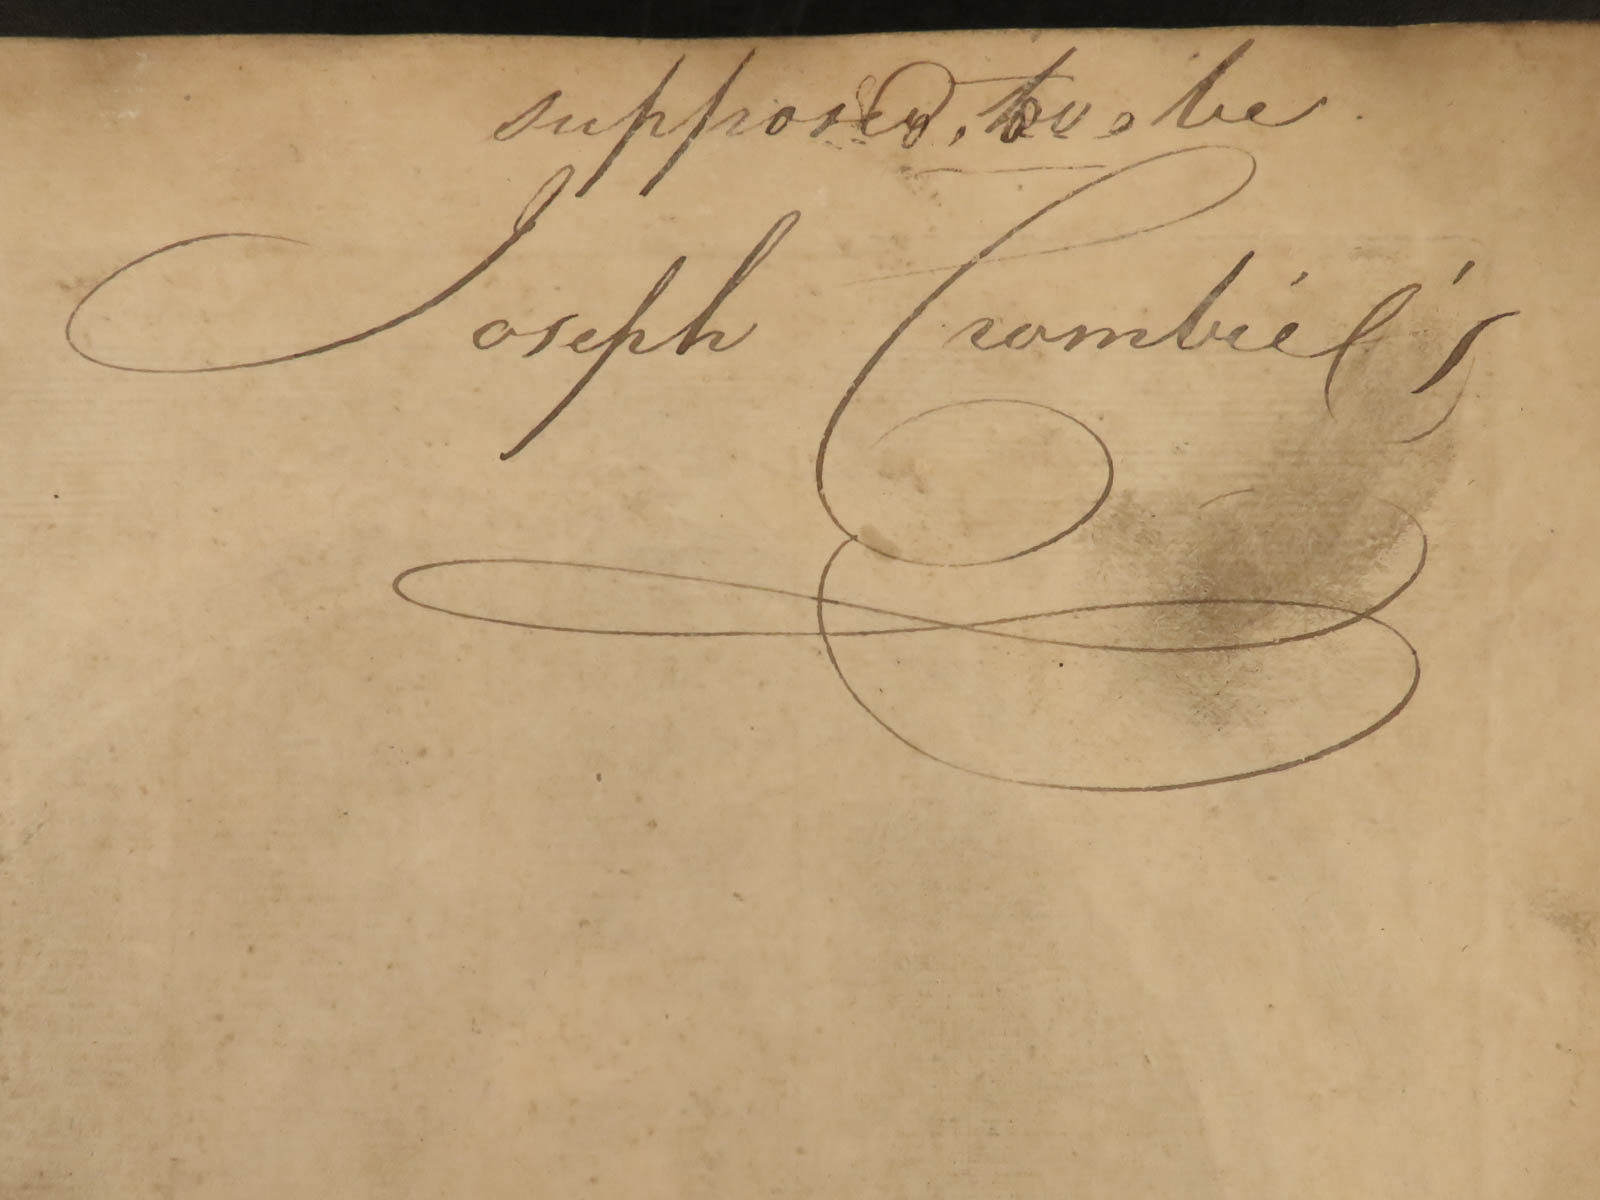 supposed, to be
Joseph Crombie's